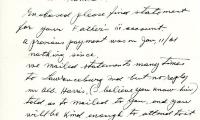 Enclosed please find statement
for your Father's account
a previous payment was on Jan, 11/61
nothing since
we mailed statements many times
to but no reply
Mr All. Harris, (I believe you know him)
told us to mailed to you, and you
will be kind enough to attend to it